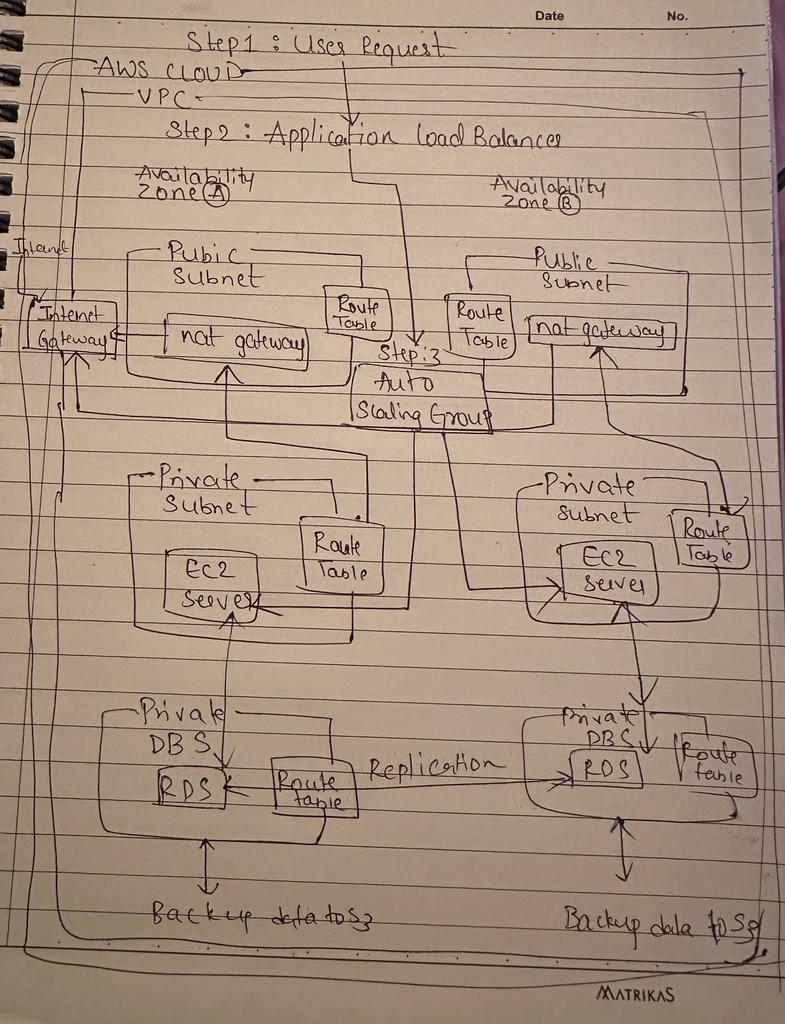 Date No.
Step1 : User Request
AWS CLOUD
VPC
Step2 : Application Load Balancer
Availability
Zone A
Availability
Zone B
Pubic
Subnet
Route
Table
Public
Subnet
Route
Table
nat gateway
Internet
Gateway
nat gateway
Step:3
Auto
Scaling Group
Private
Subnet
Route
Table
EC2
Server
Private
Subnet
Route
Table
EC2
Server
Private
DBS
RDS
Route
table
Replication
Private
DBS
RDS
Route
table
Backup data to S3
Backup data to S3
MATRIKAS